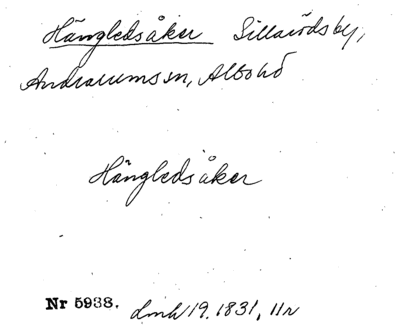 Hängledsåker Sillarödsby,
Andrarumssn, Albohd
Hängledsåker
Nr 5938. dmh 19. 1831, 11r